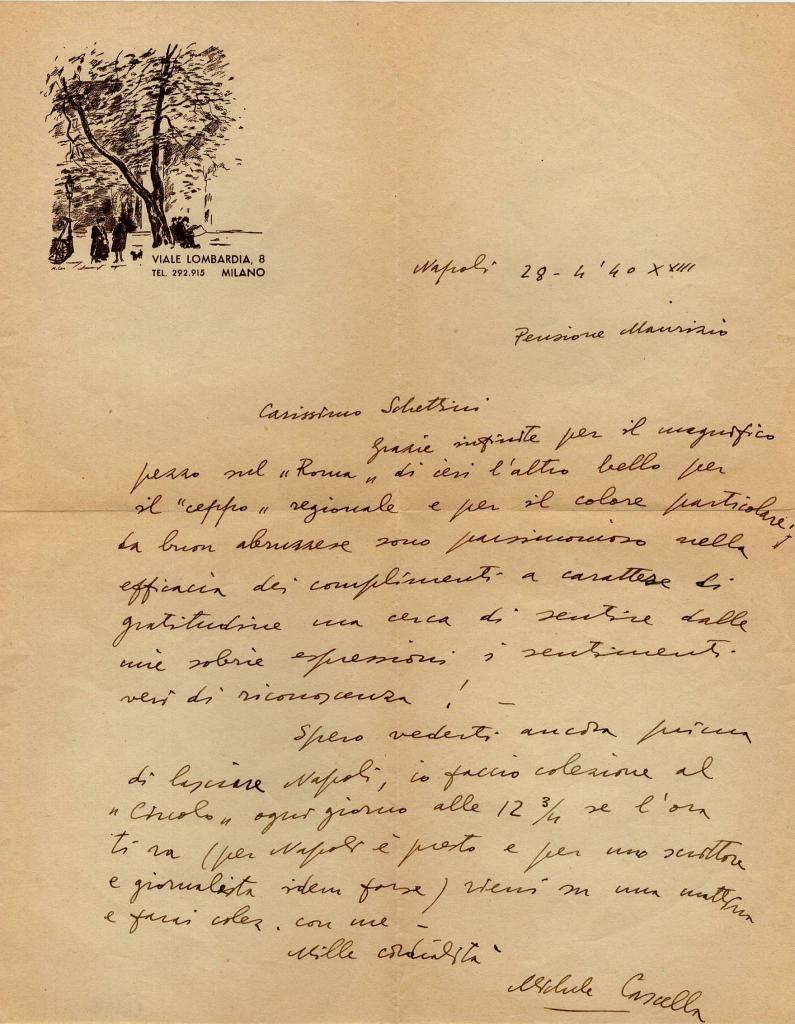 VIALE LOMBARDIA, 8
TEL. 292.915 MILANO
Napoli 28-4'40 XVIII
Pensione Maurizio
Carissimo Schettini
Grazie infinite per il magnifico
pezzo sul "Roma" di ieri l'altro bello per
il "ceppo" regionale e per il colore particolare!
da buon abruzzese sono parsimonioso nella
efficacia dei complimenti a carattere di
gratitudine ma cerca di sentire dalle
mie sobrie espressioni i sentimenti
veri di riconoscenza! –
Spero vederti ancora prima
di lasciare Napoli, io faccio colezione al
"Circolo" ogni giorno alle 12 3/4 se l'ora
ti va (per Napoli è presto e per uno scrittore
e giornalista idem forse) vieni su una mattina
e farai colez. con me –
Mille cordialità
Michele Cascella